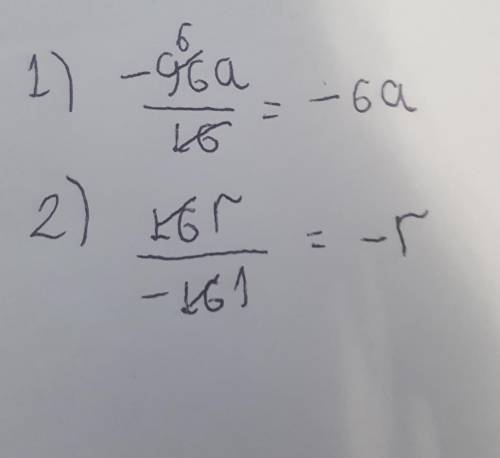 1) -96a/16 = -6a
6
2) 16r/-16 1 = -r